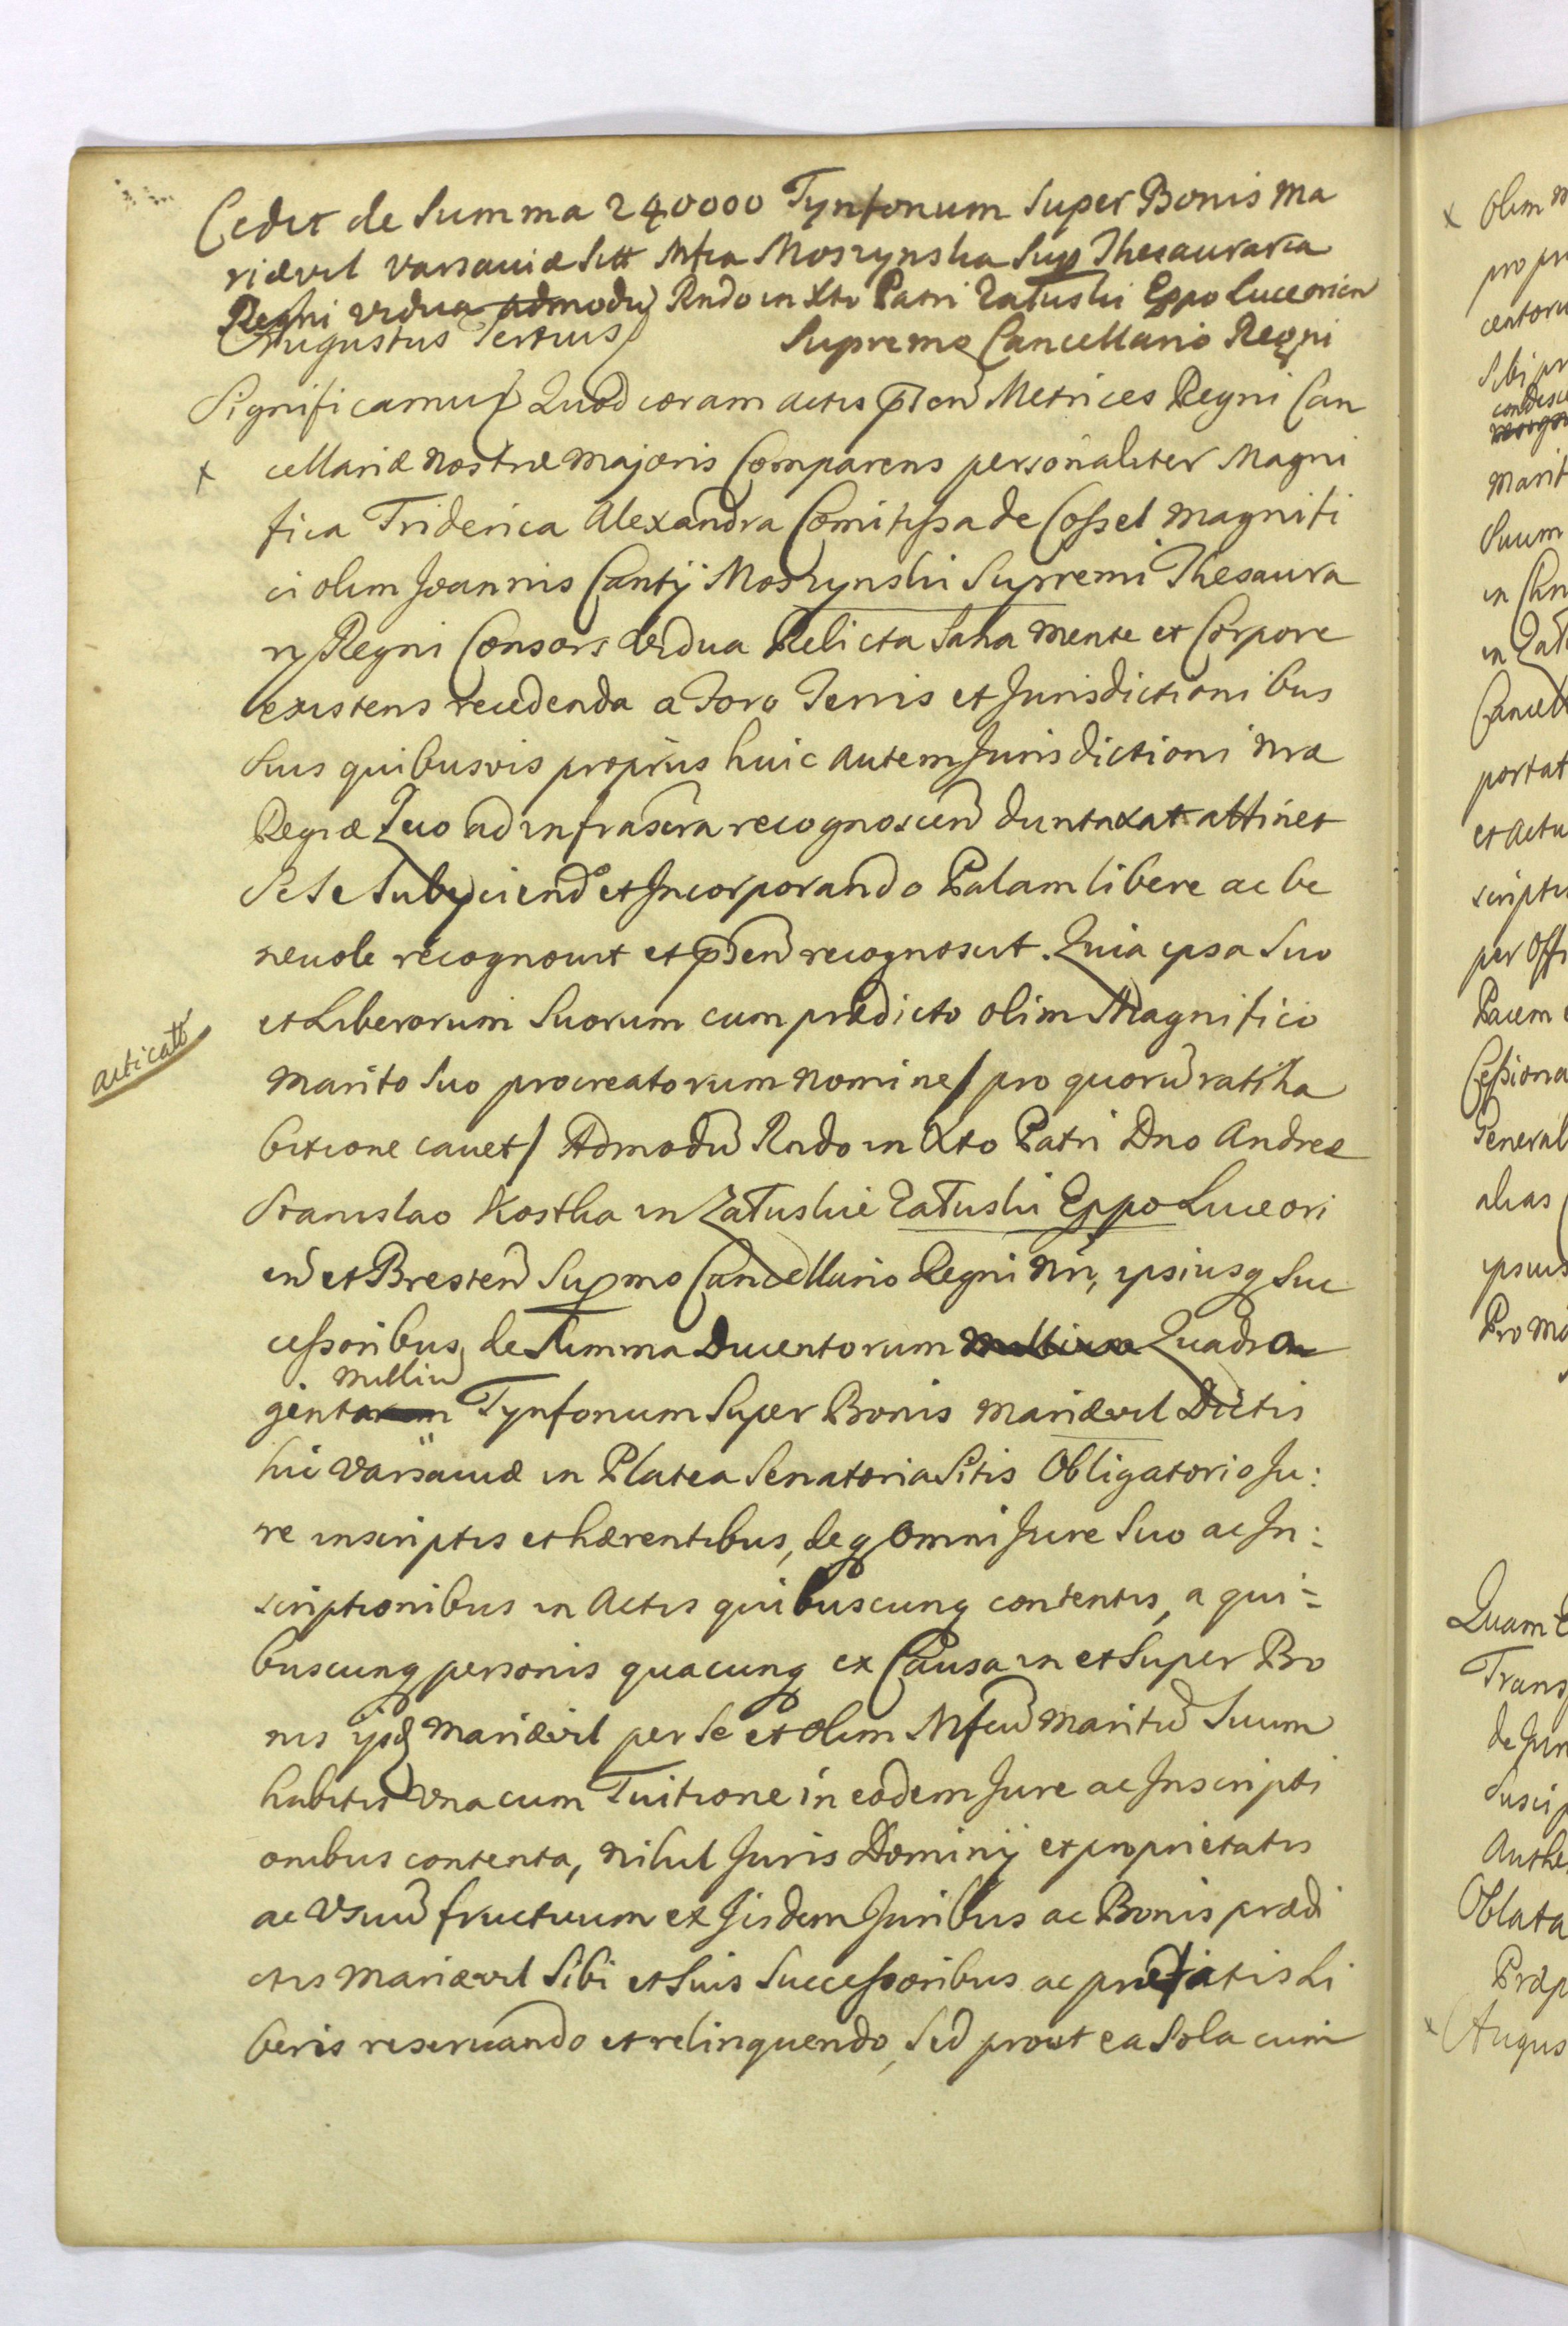 Cedit de Summa 240000 Tynfonum Super Bonis Ma
riævil Varsaviæ Sitt Mfca Moszynska Sup Thesauraria
Regni Vidua admodu Rndo in Xto Patri Załuski Eppo Luceorien
Augustus Tertius Supremo Cancellario Regni
Significamus Quod coram actis pñen Metrices Regni Can
x cellariæ nostræ majoris Comparens personaliter Magni
fica Friderica Alexandra Comitissa de Cossel Magnifi
ci olim Joannis Cantij Moszynski Supremi Thesaura
rij Regni Consors Vidua Relicta Sana mente et Corpore
existens recedendo a Foro Terris et Jurisdictionibus
Suis quibusvis proprijs huic autem Jurisdictioni nræ
Regiæ Quo ad infrascra recognoscen duntaxat attinet
Se Se subijciend et Incorporando Palam libere ac be
nevole recognovit et pñen recognoscit. Quia ipsa Suo
et Liberorum Suorum cum prædicto olim Magnifico
Marito Suo procreatorum nomine / pro quorũ ratiha
bitione cavet / Admodũ Rndo in Xto Patri Dno Andreæ
Stanislao Kostka in Załuskie Załuski Eppo Luceori
en et Bresten Supmo Cancellario Regni nri, ipsiusq Suc
cessoribus, de Summa Ducentorum millium Quadra
milliũ
gentarum Tynfonum Super Bonis Mariævil Dictis
hic Varsaviæ in Platea Senatoria Sitis Obligatorio Ju:
re inscriptis et hærentibus, deq omni Jure Suo ac In:
scriptionibus in Actis quibuscunq contentis, a qui=
buscunq personis quacunq ex Causa in et Super Bo
nis ijsd Mariævil per Se et olim Mfcũ Maritũ Suum
habitis Vna cum Tuitione in eodem Jure ac Inscripti
onibus contenta, nihil Juris Dominij et proprietatis
ac Vsuũ fructuum ex Iisdem Juribus ac Bonis prædi
ctis Mariævil Sibi et Suis Successoribus ac præfatis Li
beris reservando et relinquendo, Sed prout ea Sola cum
acticatt
x olim
pro
Sibi
Marit
Suum
in
in Zał
Cancell
portat
et actu
scriptis
per Offi
Pacem
Cessiona
General
alias
ipsius
Pro
Quam
Trans
de Jur
Suscip
Authe
Oblata
Præp
x Augus